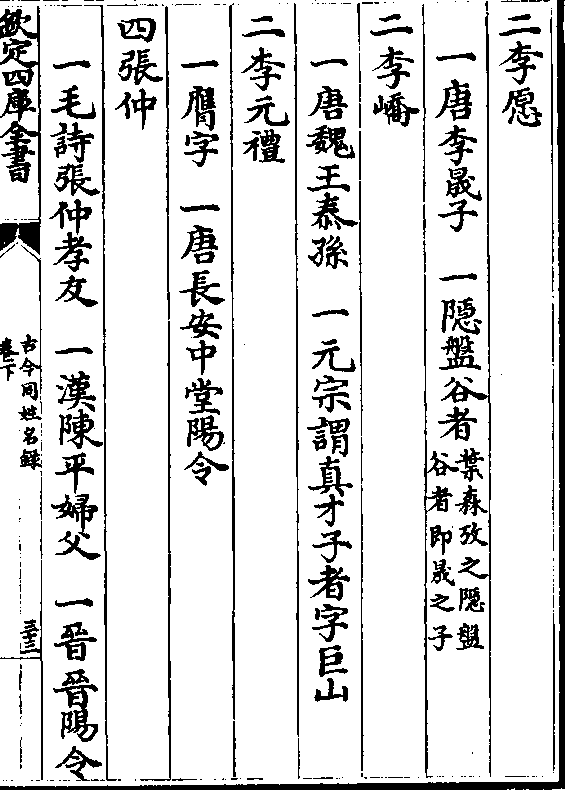 二李愿
一唐李晟子　一隠盤谷者葉森攷之隠盤
谷者即晟之子
二李嶠
一唐魏王泰孫　一元宗謂真才子者字巨山
二李元禮
一膺字　一唐長安中堂陽令
四張仲
一毛詩張仲孝友　一漢陳平婦父　一晉晉陽令
欽定四庫全書
古今同姓名録
卷下
三十三